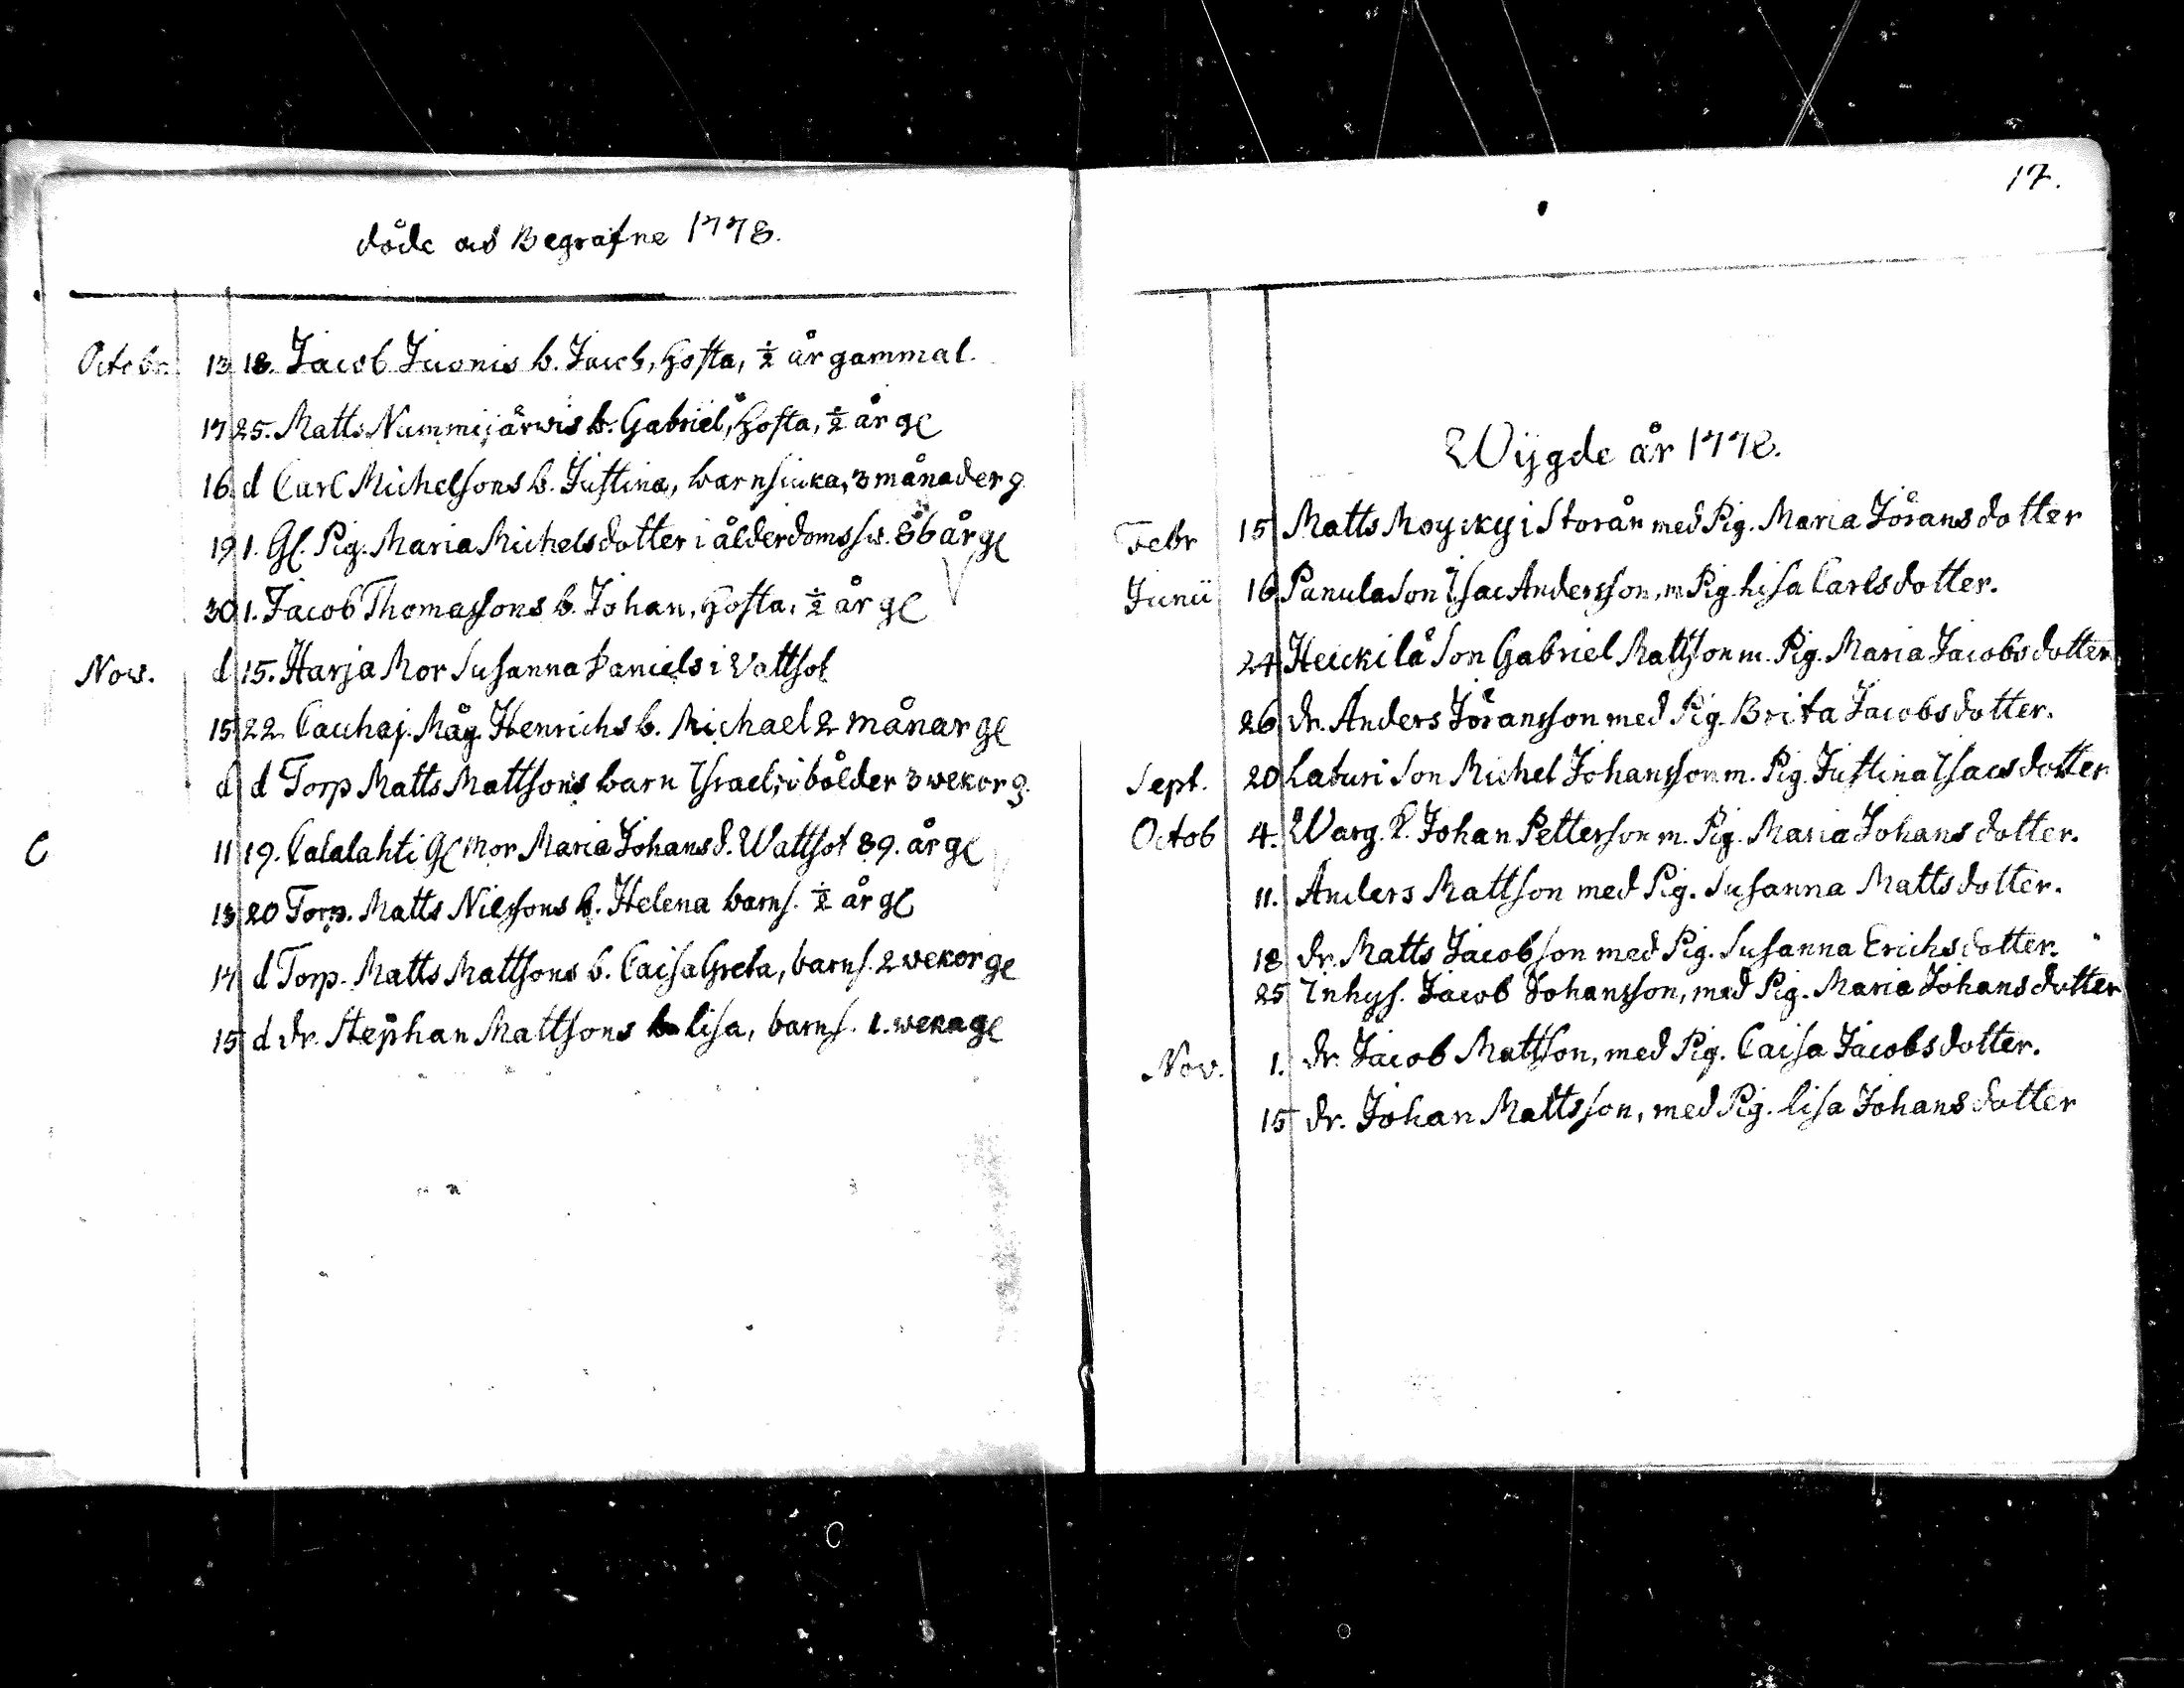 döde och Begrafne 1778.
Octobr. 13 18. Jacob Juonis b. Jacob, Hosta, ½ år gammal.
17 25. Matts Nummijärwis b. Gabriel, Hosta, ½ år gl
16 d Carl Michelsons b. Justina, barnsiuka, 3 månader g.
19 1. Gl. Pig. Maria Michelsdotter i ålderdomssw. 86 år gl
30 1. Jacob Thomassons b. Johan, Hosta, ½ år gl
Nov. d 15. Harja Mor Susanna Daniels i Vattsot
15 22 Cauhaj. Måg Henrichs b. Michael 2 månar gl
d d Torp Matts Mattsons barn Israel, i bölder 3 wekor g.
11 19. Calalahti Gl Mor Maria Johansd. Wattsot 89. år gl
13 20 Torp. Matts Nilssons b. Helena barns. ½ år gl
14 d Torp. Matts Mattsons b. Caisa Greta, barns. 2 wekor gl
15 d dr. Stephan Mattsons b. lisa, barns. 1. weka gl
17.
Wijgde år 1778.
Febr 15 Matts Moycky i Storån med Pig. Maria Jöransdotter
Junii 16 Panula Son Isac Andersson, m Pig lisa Carlsdotter.
24 Heickilä Son Gabriel Mattson m. Pig. Maria Jacobsdotter
26 dr. Anders Jöransson med Pig. Brita Jacobsdotter.
Sept. 20 Laturi Son Michel Johansson m. Pig. Justina Isacsdotter
Octob 4. Warg. Johan Petterson m. Pig. Maria Johansdotter.
11. Anders Mattson med Pig. Susanna Mattsdotter.
18 dr. Matts Jacobson med Pig. Susanna Erichsdotter.
25 Inhys. Jacob Johansson, med Pig. Maria Johansdotter
Nov. 1. dr. Jacob Mattson, med Pig. Caisa Jacobsdotter.
15 dr. Johan Mattsson, med Pig. lisa Johansdotter